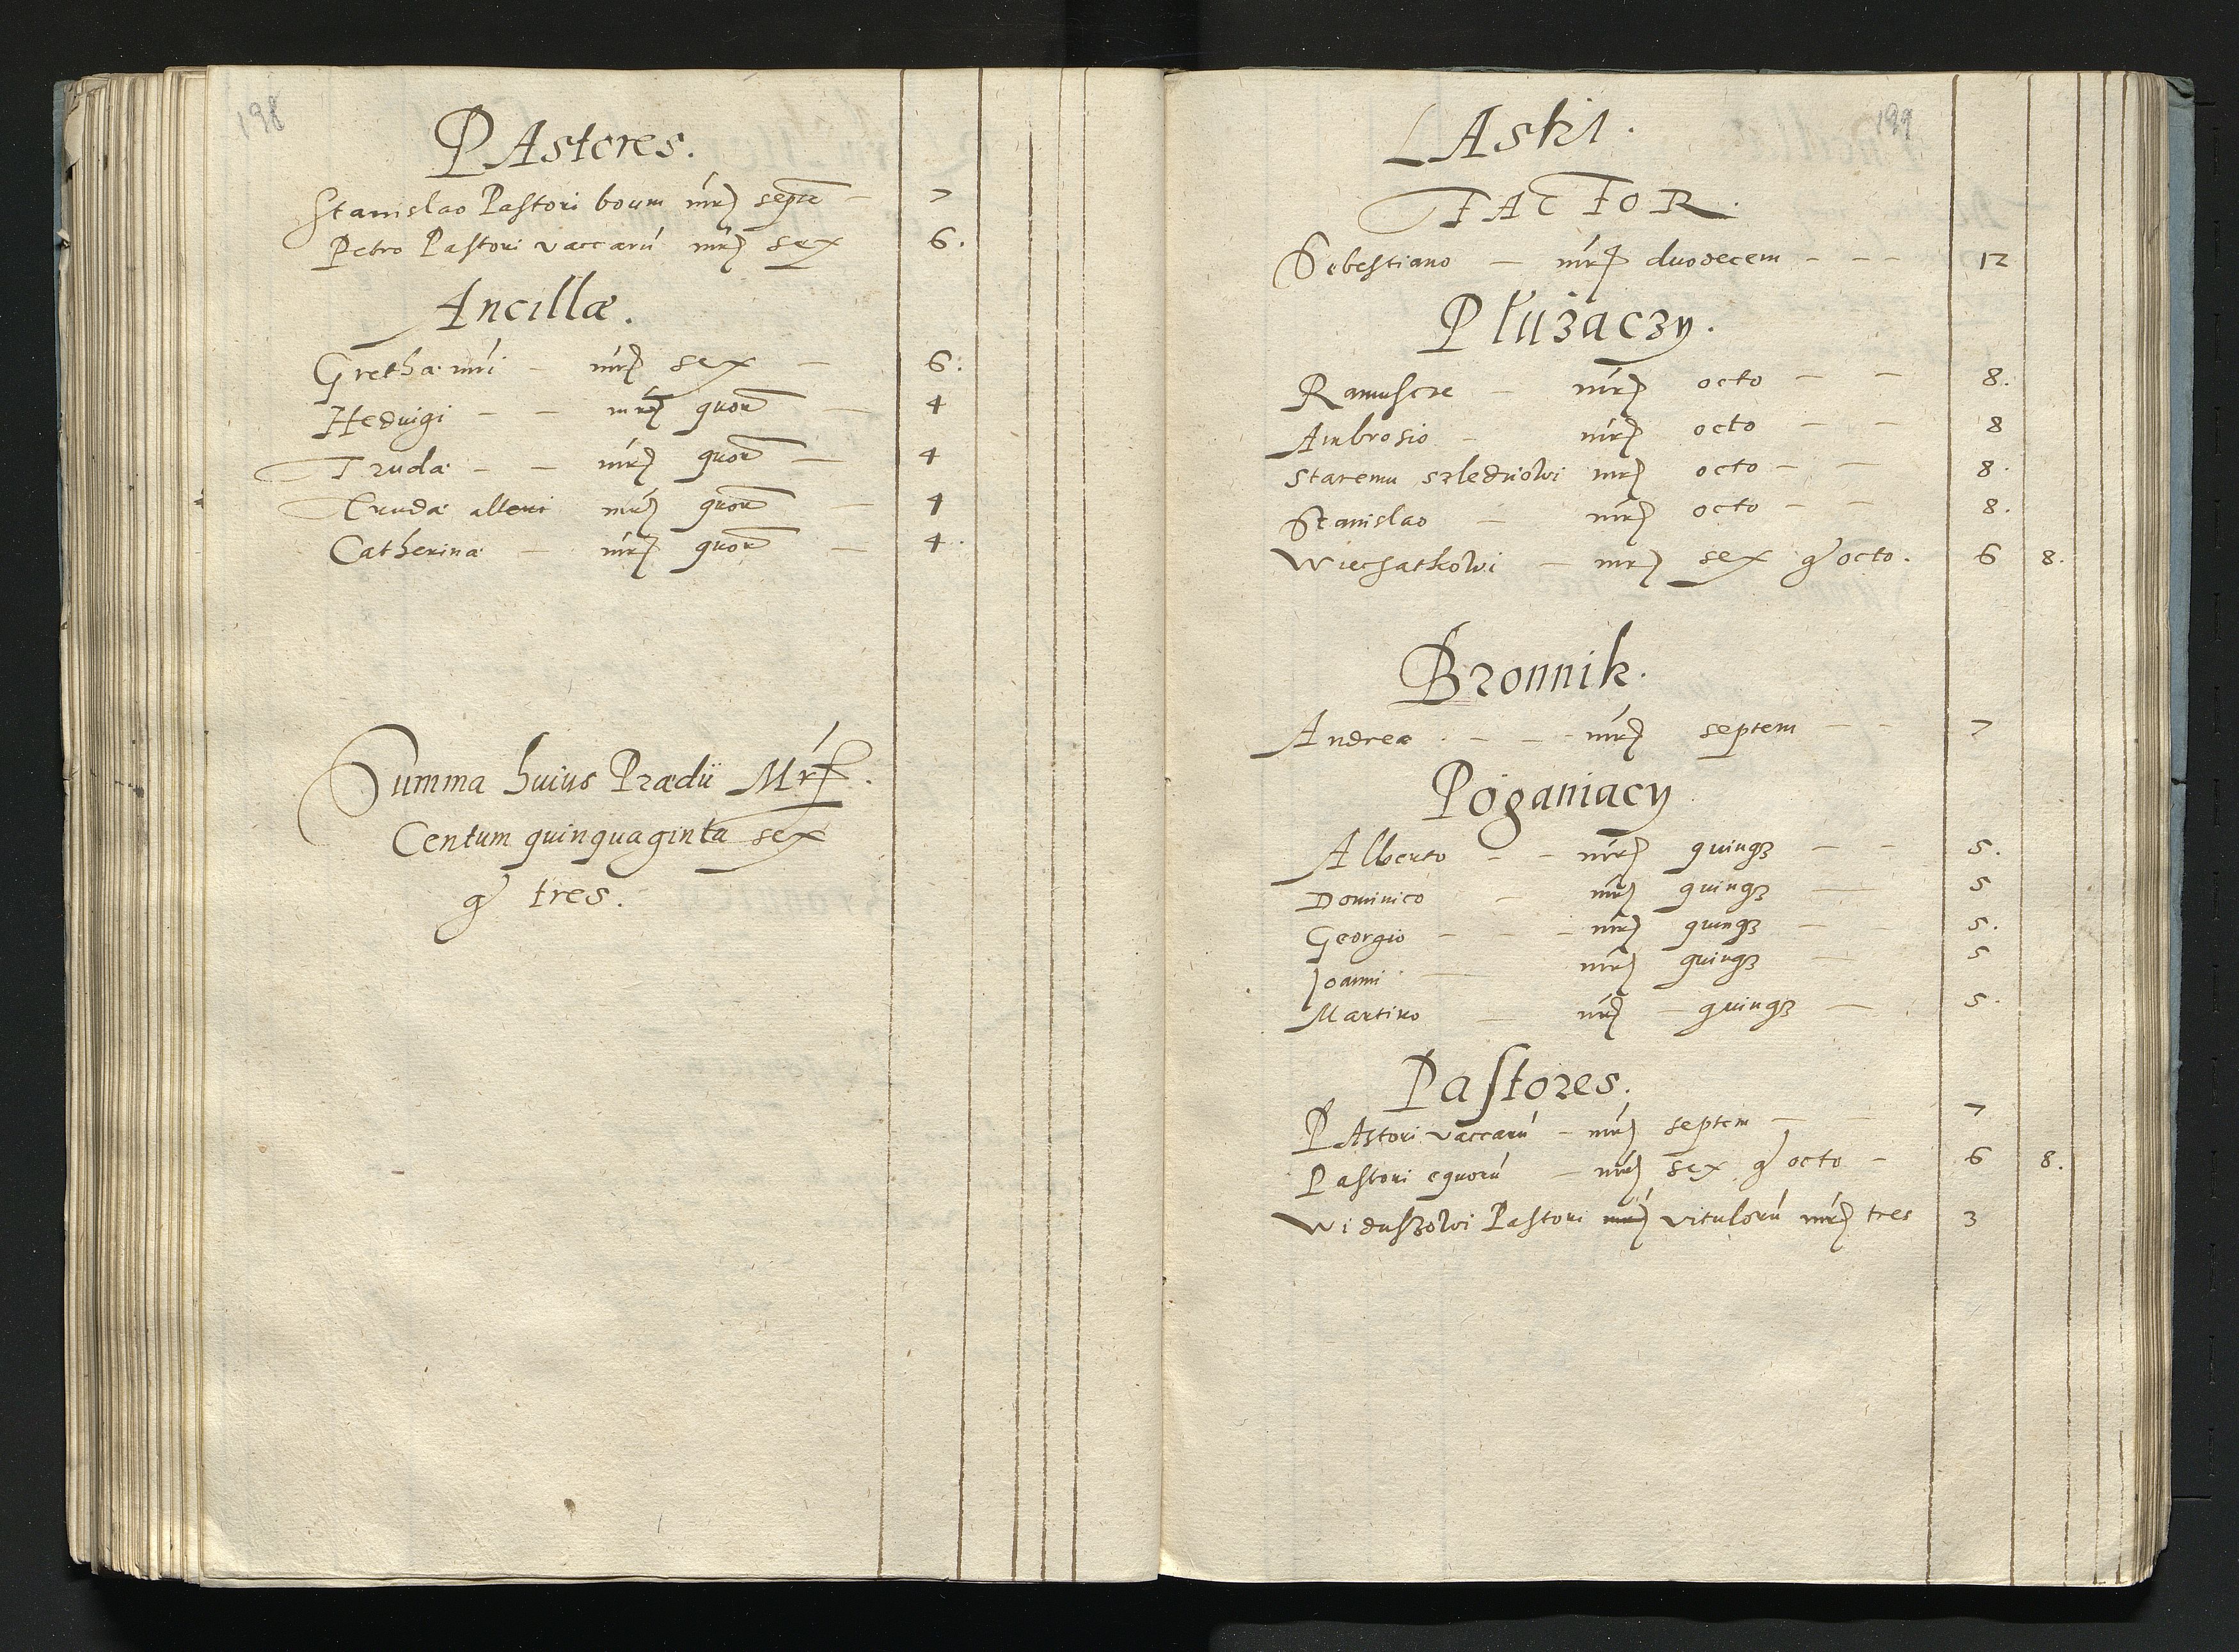 198
PAstores.
Stanislao Pastori boum mr septē – 7
Petro Pastori vaccarū mr sex 6.
Ancillæ.
Gretha – mr sex – 6:
Hedvigi – – mr quor – 4
Truda – – mr quor – 4
Truda alteri mr quor – 4
Catherina – mr quor – 4.
Summa huius Prædii Mr.
Centum quinquaginta sex
g tres.
199
LAski.
FACTOR.
Sebestiano – mr duodecem – – – 12
Płużaczy.
– mr octo – – 8.
Ambrosio – mr octo – – 8
Staremu mr octo – – 8.
Stanislao – mr octo – – 8.
– mr sex g octo. 6 8.
Bronnik.
Andreæ – – – mr septem – – 7
Poganiacy
Alberto – – mr quinqꝫ – – 5.
Dominico – mr quinqꝫ – 5
Georgio – – – mr quinqꝫ – – 5.
Joanni – mr quinqꝫ – 5
Martino – mr – quinqꝫ – 5.
Pastores.
PAstori vaccarū – mr septem – – 7
Pastori equorū – mr sex g octo – 6 8.
Widuszowi Pastori mr vitulorū mr tres 3